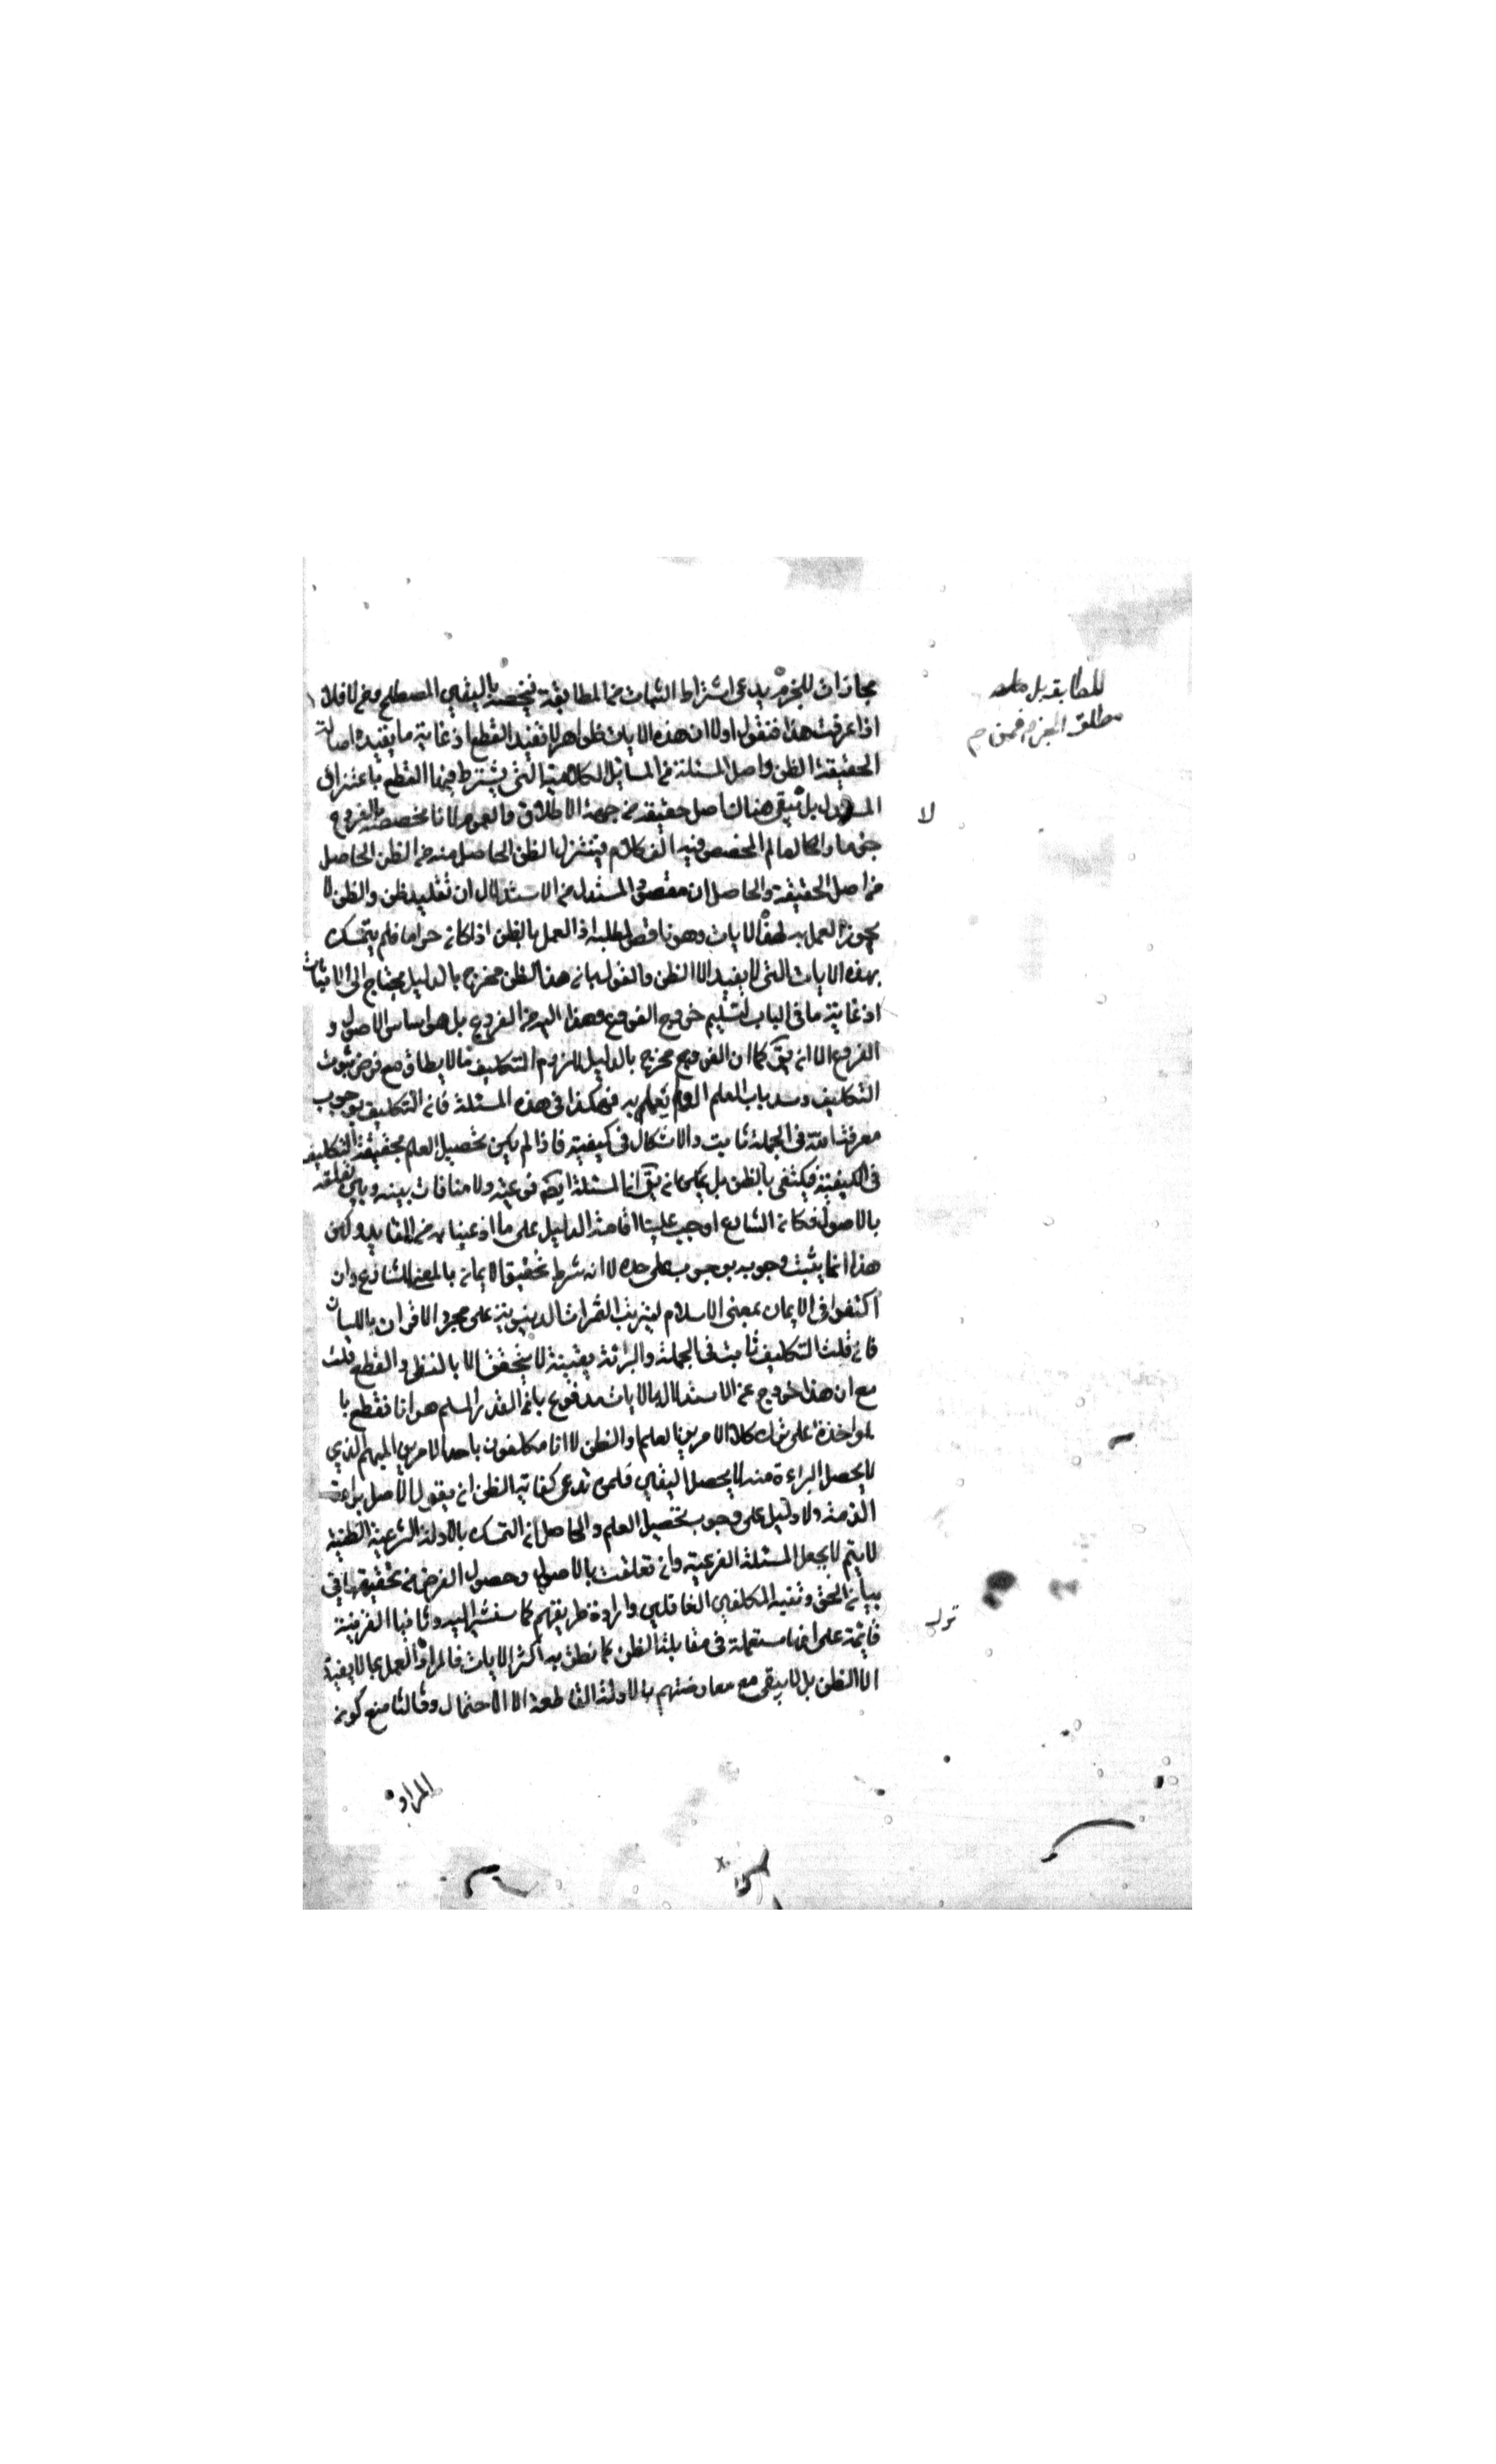 مجازات للجزم يدعى اشتراط الثبات مع المطابقة فيخصه باليقين المصطلح ومن لا فلا
اذا عرفت هذا فنقول اولا ان هذه الايات ظواهر لا تفيد القطع اذ غاية ما يفيده اصالة
الحقيقة الظن واصل المسئلة من المسائل الكلامية التي يشترط فيها القطع باعتراف
المستدل بل لا يبقى هنا اصل حقيقة من جهة الاطلاق والعموم لانا نخصصه بالفروع
جزما والعام المخصص فيه الف كلام فيتنزل الظن الحاصل منه من الظن الحاصل
من اصل الحقيقة والحاصل ان مقصود المستدل من الاستدلال ان تقليد ظن والظن لا
يجوز العمل به لهذه الايات وهو ناقص لطلبه اذ العمل بالظن اذا كان حراما فلم يتمسك
بهذه الايات التي لا يفيد الا الظن والقول بان هذا الظن مخرج بالدليل يحتاج الى الاثبات
اذ غاية ما في الباب تسليم خروج الفروع وهذا ليس من الفروع بل هو اساس الاصول و
الفروع الا ان يق كما ان الفروع مخرج بالدليل للزوم التكليف بما لا يطاق مع فرض ثبوت
التكليف وسد باب العلم لو لم يعمل به فهكذا في هذه المسئلة فان التكليف بوجوب
معرفة الله في الجملة ثابت والاشكال في كيفية فاذا لم يكن تحصيل العلم بحقيقة التكليف
في الكيفية فيكتفى بالظن بل يمكن ان يق ان المسئلة ايضا فرعية ولا منافات بينه وبين تعلقه
بالاصول فكان الشارع اوجب علينا اقامة الدليل على ما ادعينا من العقايد ولكن
هذا انما يثبت وجوبه بوجوب على حده لا انه شرط تحقيق الايمان بالمعنى الشايع وان
اكتفوا في الايمان بمعنى الاسلام ليترتب الثمرات الدنيوية على مجرد الاقرار باللسان
فان قلت التكليف ثابت في الجملة والبرائة يقينية لا يتحقق الا بالنظر والقطع قلت
مع ان هذا خروج عن الاستدلال بالايات مدفوع بان القدر المسلم هو انا نقطع با
لمواخذة على ترك كلا الامرين العلم والظن لا انا مكلفون باحد الامرين المبهم الذي
لا يحصل البراءة منه الا يحصل اليقين فلمن يدعى كفاية الظن ان يقول الاصل برائة
الذمة ولا دليل على وجوب تحصيل العلم والحاصل ان التمسك بالادلة الشرعية الظنية
لا يتم الا بجعل المسئلة الفرعية وان تعلقت بالاصول وحصول الغرض من تحقيقها في
بيان الحق وتنبيه المكلفين الغافلين وارادة طريقهم كما سنشير اليه وثانيا القرينة
قائمة على انها مستعملة في مقابلة الظن كما نطق به اكثر الايات فالمراد العمل بما لا يفيد
الا الظن بل لا يبقى مع معارضتهم بالادلة القاطعة الا الاحتمال وثالثا منع كون
المراد
للمطابقة بل
مطلق الجزم فمن م
لا
ترك